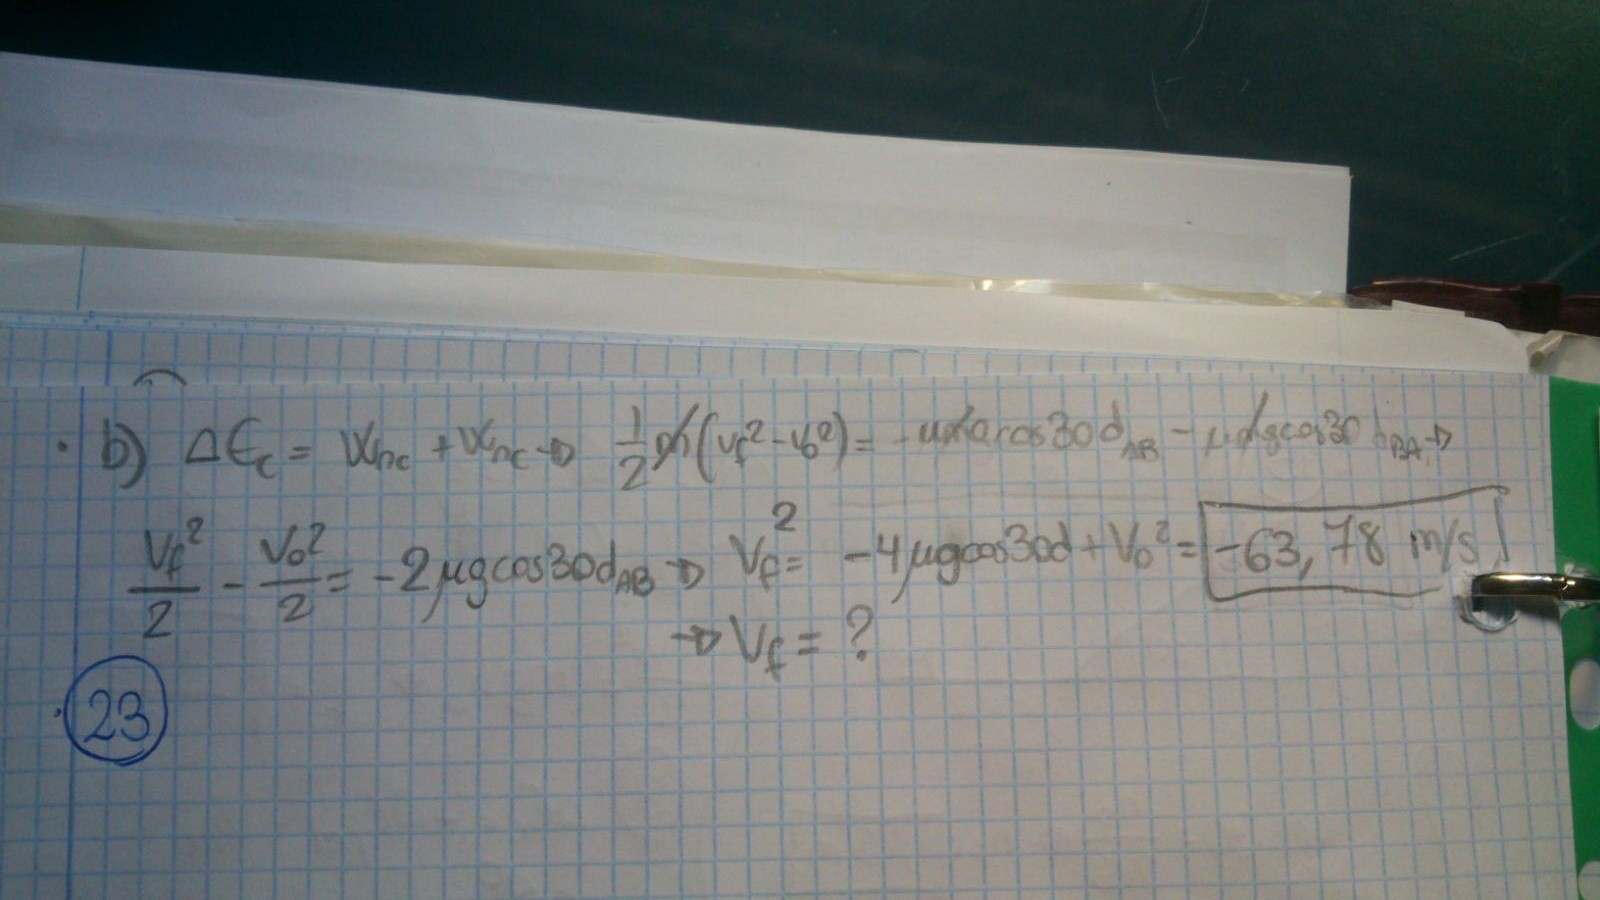 · b) ΔEc = Wnc + Wnc → 1/2 m(vf² - v0²) = -μmg cos30 dAB - μmg cos30 dBA →
Vf²/2 - V0²/2 = -2μg cos30 dAB → Vf² = -4μg cos30 d + V0² = -63,78 m/s
→ Vf = ?
· 23